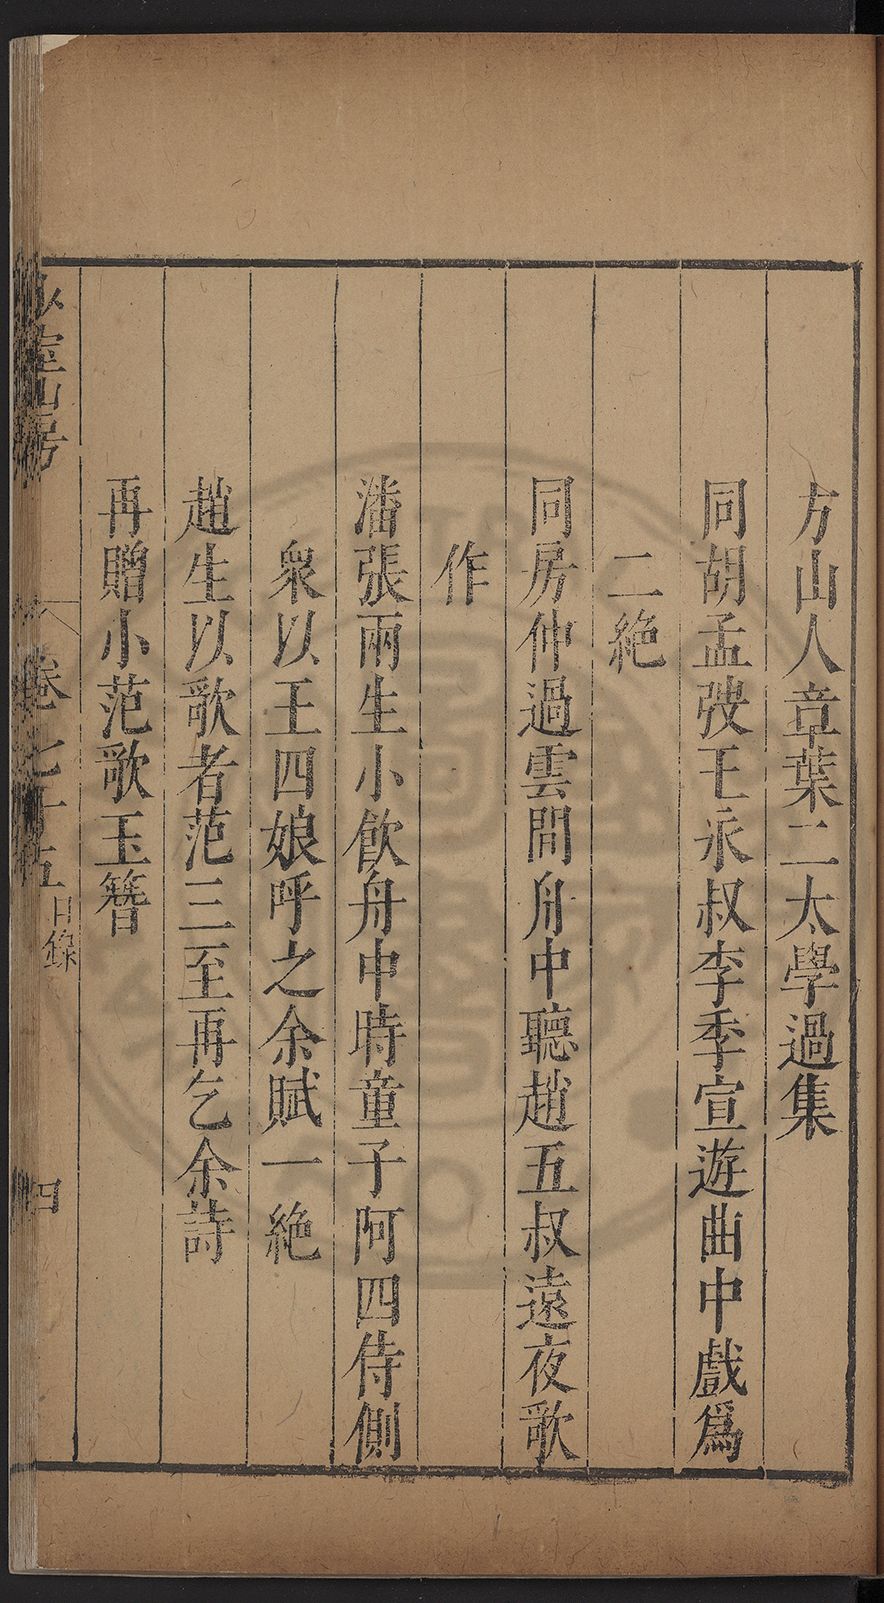 方山人章葉二太學過集
同胡孟弢王承叔李季宣遊曲中戲爲
二絶
同房仲過雲間舟中聽趙五叔遠夜歌
作
潘張兩生小飲舟中時童子阿四侍側
衆以王四娘呼之余賦一絶
趙生以歌者范三至再乞余詩
再贈小范歌玉簪
少室山房
卷七十五 目錄
四